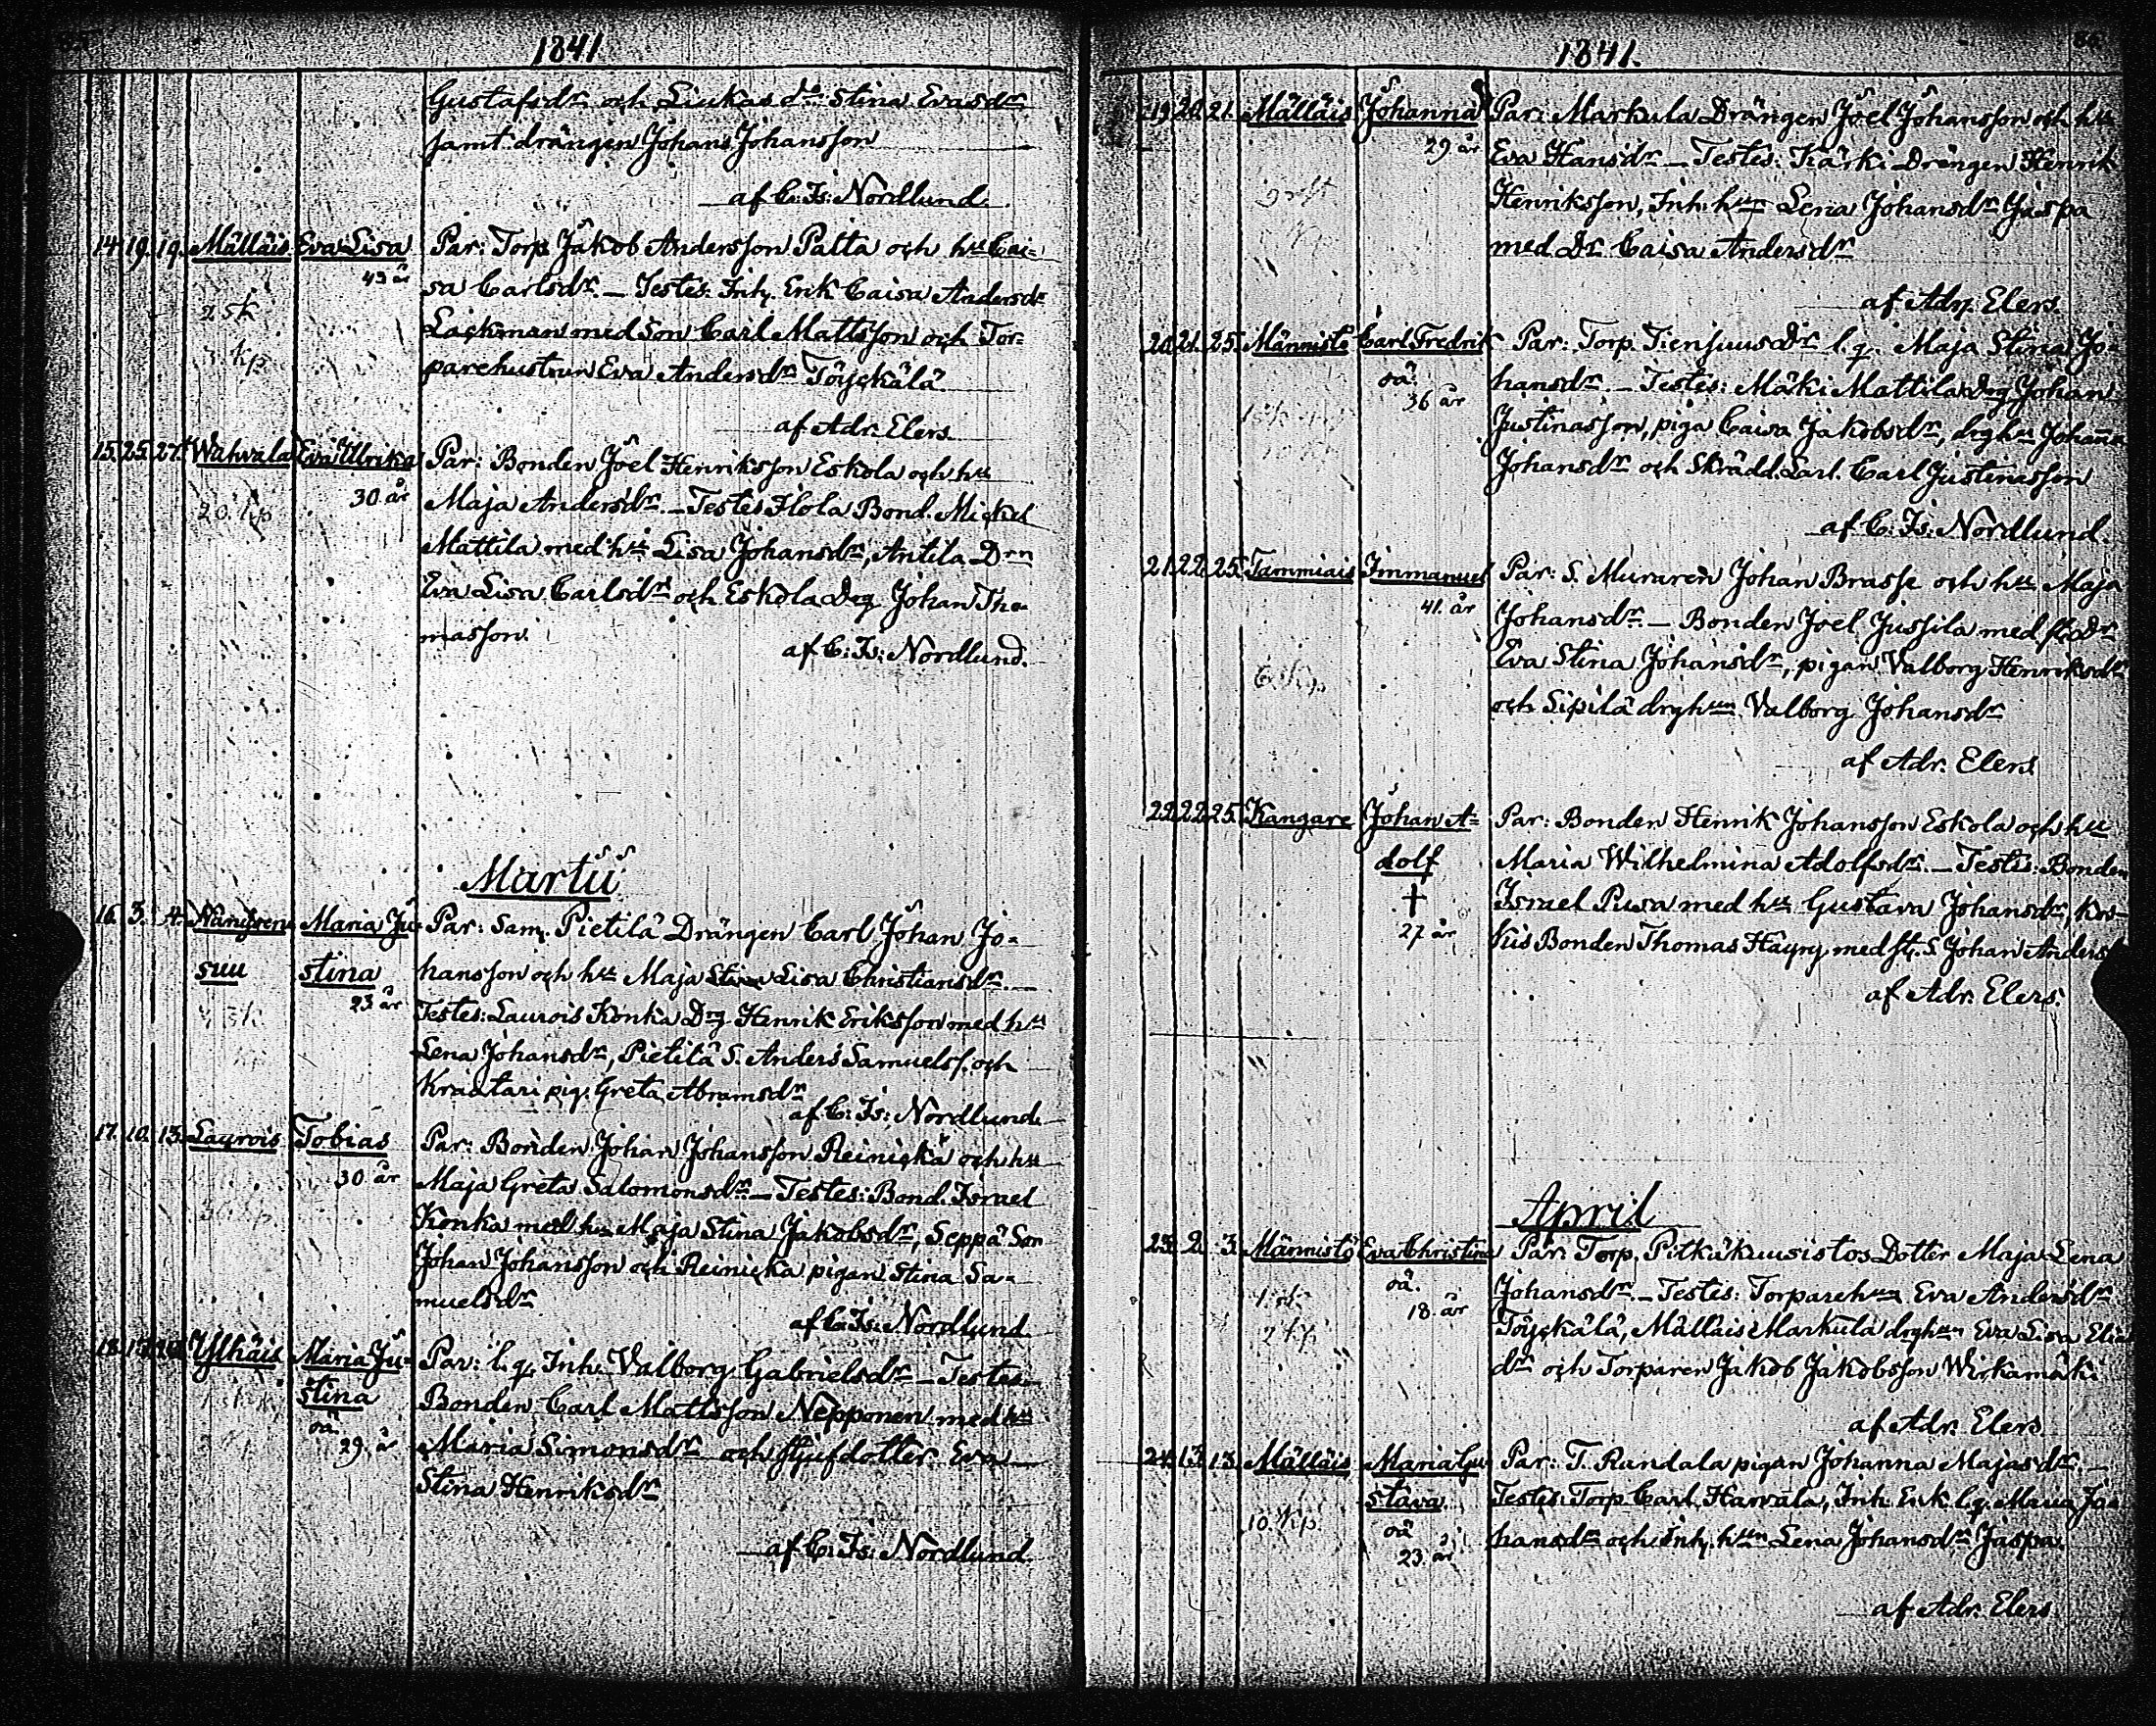 1841
Gustafsdr och Liukas do Stina Evasdr
samt drängen Johan Johansson
af C: Is: Nordlund.
14. 19. 19. Mälläis Eva Lisa Par: Torp Jakob Andersson Patta och hu Cai-
43 år sa Carlsdr. – Testes: Inh. Enk Caisa Andersdr
2 sk Lackman med Son Carl Mattsson och Tor-
kp parehustrun Eva Andersdr Töyckälä
af Adr. Elers.
15. 25. 27. Wahvala Eva Ulrika Par: Bonden Joel Henriksson Eskola och hu
20. kp 30 år Maja Andersdr. – Testes Hola Bond. Mickel
Mattila med hu Lisa Johansdr, Antila Drn
Eva Lisa Carlsdr och Eskola Drg Johan Tho-
masson.
af C: Is: Nordlund.
Martii
16. 3. 4. Maria Ju- Par: Sam. Pietilä Drängen Carl Johan Jo-
suu stina hansson och hu Maja Lisa Christiansdr. –
23 år Testes: Laurois Konka Drg Henrik Eriksson med hu
Lena Johansdr, Pietilä S. Anders Samuelss. och
pig. Greta Abramsdr
af C: Is: Nordlund.
17. 10. 13. Laurois Tobias Par: Bonden Johan Johansson Reinickä och hu
30 år Maja Greta Salomonsdr. – Testes: Bond. Israel
Konka med hu Maja Stina Jakobsdr, Seppä Son
Johan Johansson och Reinicka pigan Stina Sa-
muelsdr
af C: Is: Nordlund.
18. Ylhäis Maria Ju- Par: l. q. Inh. Valborg Gabrielsdr – Testes
stina Bonden Carl Mattsson Nepponen med hu
oä. 29. år Maria Simonsdr och Stjufdotter Eva
Stina Henriksdr
af C: Is: Nordlund.
1841.
19. 20. 21. Mälläis Johanna Par: Markula Drängen Joel Johansson och hu
29 år Eva Hansdr – Testes: Kärki Drängen Henrik
Henriksson, Inh. hun Lena Johansdr Jaspa
med Dr. Caisa Andersdr
af Adr. Elers.
20. 21. 25. Männistö Carl Fredrik Par: Torp. Tiensuus Dr l. q. Maja Stina Jo-
oä. 36 år hansdr. – Testes: Mäki Mattila Drg Johan
Justinasson, piga Caisa Jakobsdr, drghu Johanna
Johansdr och Skrädd. Lärl. Carl Justinasson
af C: Is: Nordlund.
21. 22. 25. Tammiais Immanuel Par: S. Muraren Johan Brasse och hu Maja
41. år Johansdr. – Bonden Joel Jussila med Dr
Eva Stina Johansdr, pigan Valborg Henriksdr
och Sipilä drghun Valborg Johansdr
af Adr. Elers
22. 22. 25. Kangare Johan A- Par: Bonden Henrik Johansson Eskola och hu
dolf Maria Wilhelmina Adolfsdr. – Testes: Bonden
† Israel Pusa med hu Gustava Johansdr, Kos-
27 år kis Bonden Thomas Häyry med S Johan Anders
af Adr. Elers.
April
23. 2. 3. Männistö Eva Christina Par: Torp. Pitkäkuusistos Dotter Maja Lena
1 sk oä. Johansdr. – Testes: Torparehun Eva Andersdr
2 kp 18. år Töyckälä, Mälläis Markula drghun Eva Lisa Elia
dr och Torparen Jakob Jakobsson Wirkamäki
af Adr. Elers
24. 13. 13. Mälläis Maria Gu Par: T. Rundala pigan Johanna Majasdr. –
stava Testes: Torp. Carl Harvala, Inh. Enk. l. q. Maria Jo-
10. kp. oä hansdr och Inh. hun Lena Johansdr Jaspa
23. år
af Adr. Elers